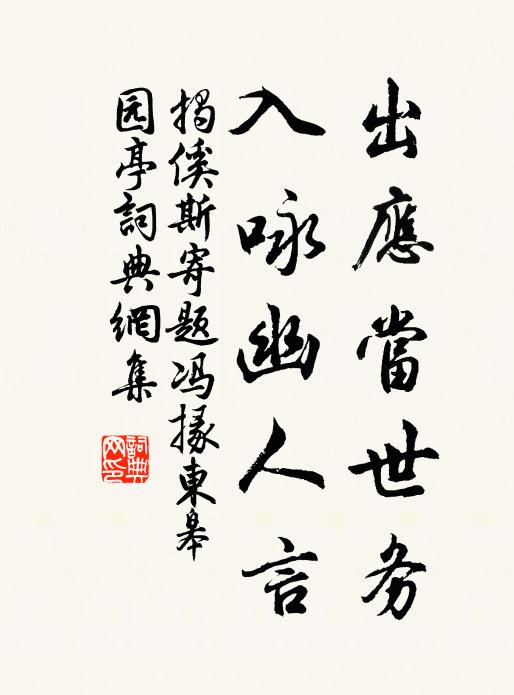 出應當世务
入咏幽人言
揭傒斯寄题冯掾東皋
园亭詞典網集
詞典
网印